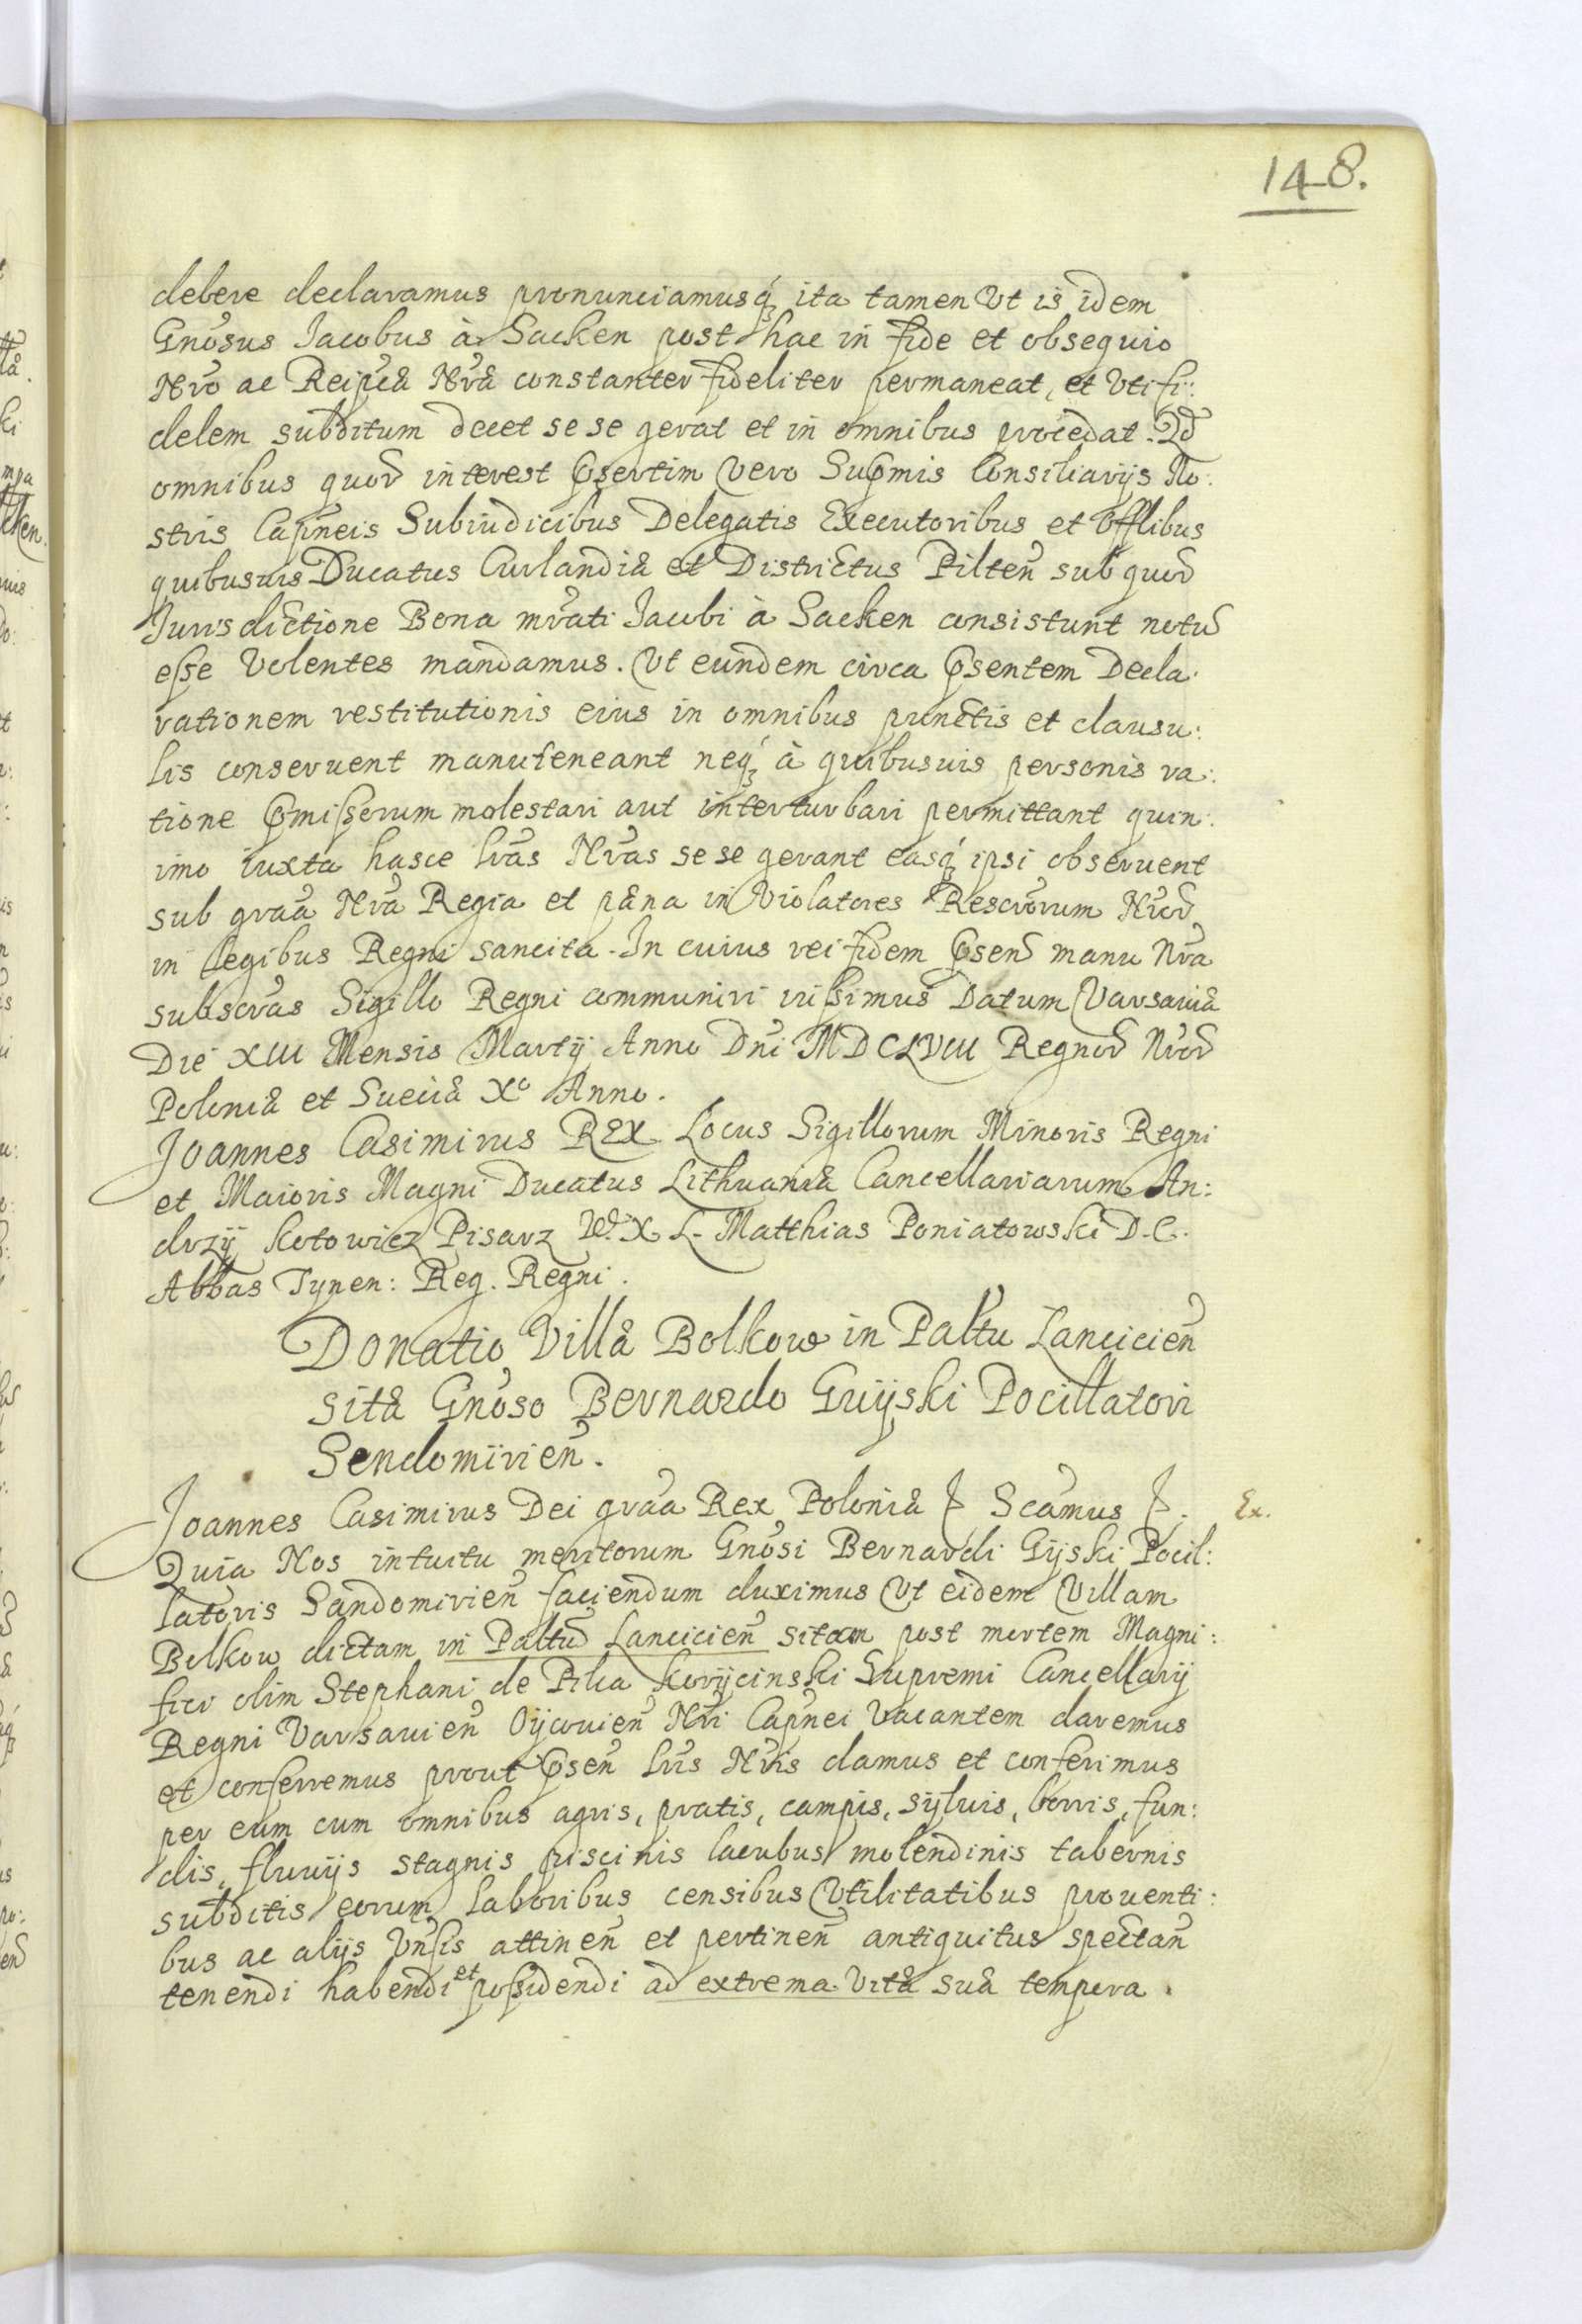 148.
debere declaramus pronunciamusq́ꝫ ita tamen Vt is idem
Gnosus Jacobus à Sacken post hac in fide et obsequio
Nro ac Reipcæ Nræ constanter fideliter permaneat, et Vti fi:
delem subditum decet se se gerat et in omnibus procedat. Qd
omnibus quor interest Psertim Vero Supmis Consiliarijs No:
stris Capneis Subiudicibus Delegatis Executoribus et Offlibus
quibusuis Ducatus Curlandiæ et Districtus Pilten sub quor
Jurisdictione Bona mrati Jacobi à Sacken consistunt notu
esse Volentes mandamus. Vt eundem circa Psentem Decla:
rationem restitutionis eius in omnibus punctis et clausu:
lis conseruent manuteneant neq́ꝫ à quibusuis personis ra:
tione Pmissorum molestari aut interturbari permittant quin:
imo iuxta hasce lras Nras se se gerant easq́ꝫ ipsi obseruent
sub graa Nra Regia et pæna in Violatores Rescrorum Nror
in legibus Regni sancita. In cuius rei fidem Psen manu Nra
subscras Sigillo Regni communiri iussimus Datum Varsauiæ
Die XIII Mensis Martij Anno Dni MDCLVIII Regnor Nror
Poloniæ et Sueciæ Xo Anno.
Joannes Casimirus REX Locus Sigillorum Minoris Regni
et Maioris Magni Ducatus Lithuaniæ Cancellariarum An:
drzij Kotowicz Pisarz W. X L. Matthias Poniatowski D. C.
Abbas Tynen: Reg. Regni.
Donatio Villæ Bolkow in Paltu Lancicien
sitæ Gnoso Bernardo Giijski Pocillatori
Sendomirien.
Joannes Casimirus Dei graa Rex Poloniæ &. Scamus &.
Ex.
Quia Nos intuitu meritorum Gnosi Bernardi Gijski Pocil:
latoris Sandomirien faciendum duximus Vt eidem Villam
Bolkow dictam in Paltu Lancicien sitam post mortem Magni:
fici olim Stephani de Pilca Korÿcinski Supremi Cancellarij
Regni Varsauien Oÿcouien Nri Capnei Vacantem daremus
et conferremus prout Psen lris Nris damus et conferimus
per eum cum omnibus agris, pratis, campis, syluis, borris, fun:
dis, fluuijs stagnis piscinis lacubus molendinis tabernis
subditis eorum laboribus censibus Vtilitatibus prouenti:
bus ac alijs Vnsis attinen et pertinen antiquitus spectan
tenendi habendi et possidendi ad extrema Vitæ suæ tempora.